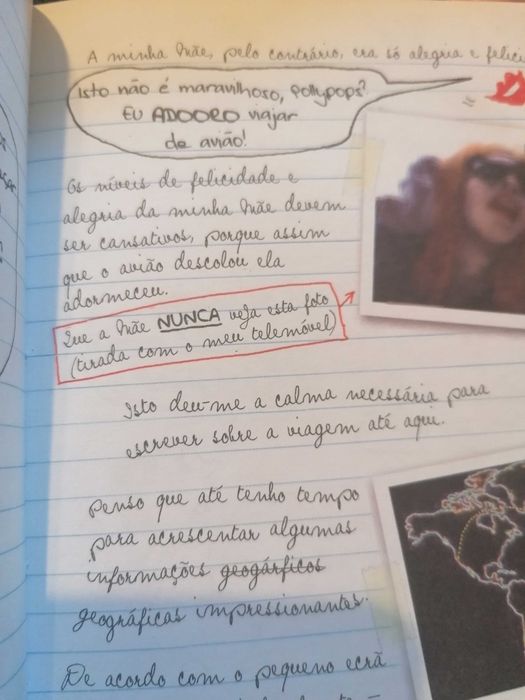 A minha Mãe, pelo contrário, era só alegria e
Isto não é maravilhoso, Pollypops?
EU ADOORO viajar
de avião!
Os níveis de felicidade e
alegria da minha Mãe devem
ser cansativos, porque assim
que o avião descolou ela
adormeceu.
Que a Mãe NUNCA veja esta foto
(tirada com o meu telemóvel)
Isto deu-me a calma necessária para
escrever sobre a viagem até aqui.
Penso que até tenho tempo
para acrescentar algumas
informações geogárficos
geográficas impressionantes.
De acordo com o pequeno ecrã